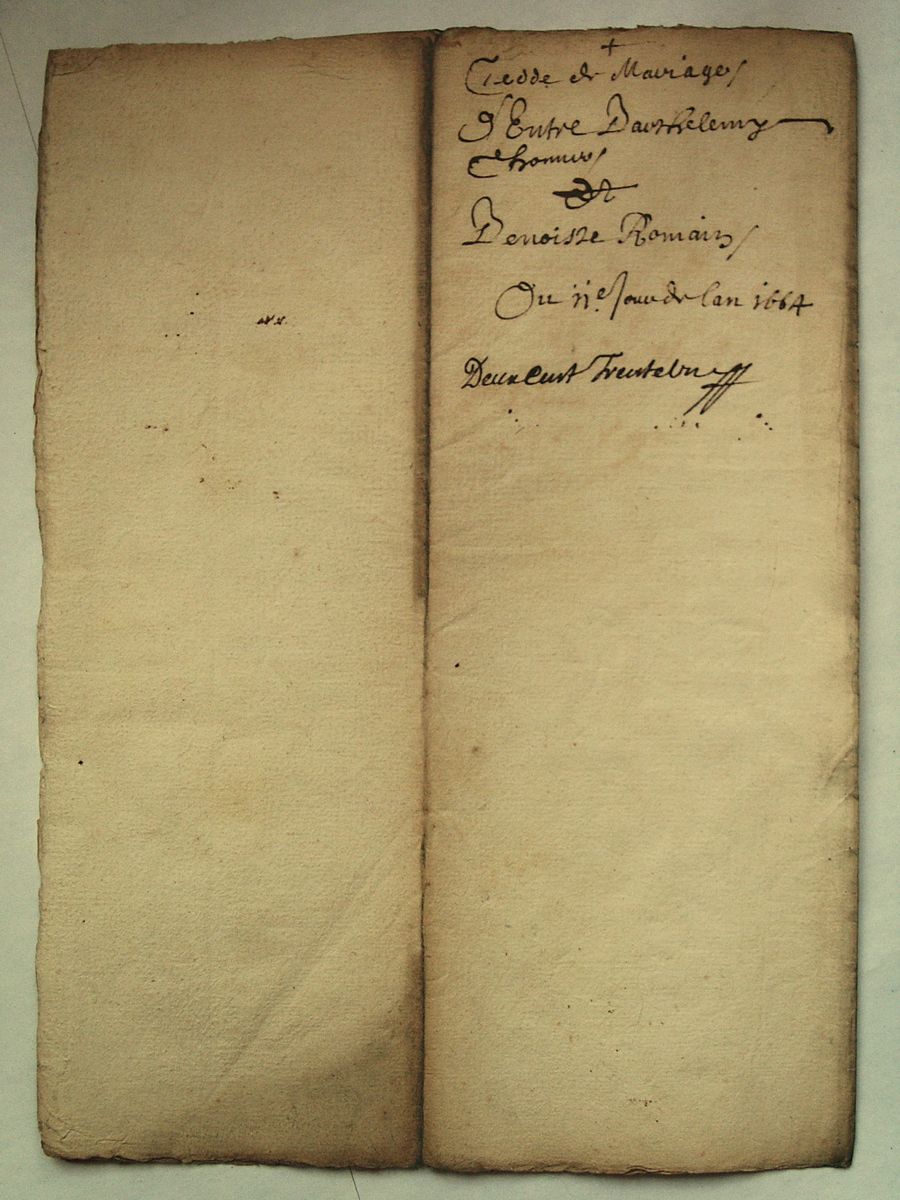 +
Cedde de Mariage
D'Entre Barthelemy
Thomas
Et
Benoiste Romain
Du 11e Jour de lan 1664
Deux Cent Trente